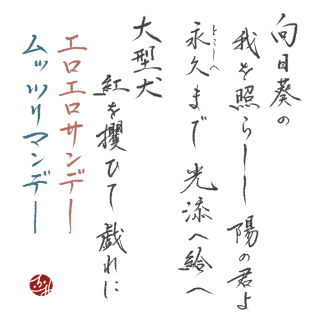 向日葵の
我を照らしし 陽の君よ
永久まで 光添へ給へ
とこしへ
大型犬
紅を攫ひて 戯れに
エロエロサンデー
ムッツリマンデー